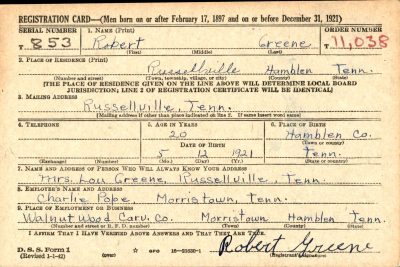 REGISTRATION CARD—(Men born on or after February 17, 1897 and on or before December 31, 1921)
SERIAL NUMBER 1. NAME (Print) ORDER NUMBER
T 853 Robert Greene T11,038
(First) (Middle) (Last)
2. PLACE OF RESIDENCE (Print)
Russellville Hamblen Tenn.
(Number and street) (Town, township, village, or city) (County) (State)
[THE PLACE OF RESIDENCE GIVEN ON THE LINE ABOVE WILL DETERMINE LOCAL BOARD
JURISDICTION; LINE 2 OF REGISTRATION CERTIFICATE WILL BE IDENTICAL]
3. MAILING ADDRESS
Russellville, Tenn.
[Mailing address if other than place indicated on line 2. If same insert word same]
4. TELEPHONE 5. AGE IN YEARS 6. PLACE OF BIRTH
20 Hamblen Co.
DATE OF BIRTH (Town or county)
5 12 1921 Tenn.
(Exchange) (Number) (Mo.) (Day) (Yr.) (State or country)
7. NAME AND ADDRESS OF PERSON WHO WILL ALWAYS KNOW YOUR ADDRESS
Mrs. Lou Greene, Russellville, Tenn.
8. EMPLOYER'S NAME AND ADDRESS
Charlie Pope, Morristown, Tenn.
9. PLACE OF EMPLOYMENT OR BUSINESS
Walnut Wood Carv. Co. Morristown Hamblen Tenn.
(Number and street or R. F. D. number) (Town) (County) (State)
I AFFIRM THAT I HAVE VERIFIED ABOVE ANSWERS AND THAT THEY ARE TRUE.
D. S. S. Form 1
(Revised 1-1-42) (over) GPO 16—21630-1 Robert Greene
(Registrant's signature)